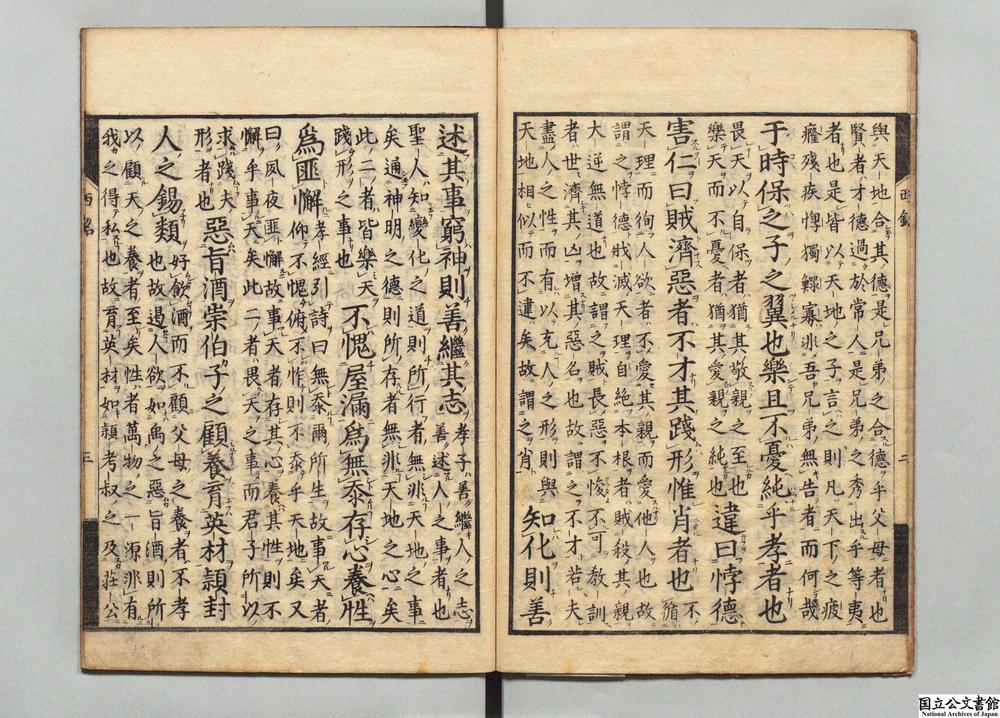 與天地合其德是兄弟之合德乎父母者也
賢者才德過於常人是兄弟之秀出乎等夷
者也是皆以天地之子言之則凡天下之疲
癃殘疾惸獨鰥寡非吾兄弟無告者而何哉
于時保之子之翼也樂且不憂純乎孝者也
畏天以自保者猶其敬親之至也
樂天而不憂者猶其愛親之純也
違曰悖德
害仁曰賊濟惡者不才其踐形惟肖者也
不
循
天理而徇人欲者不愛其親而愛他人也故
謂之悖德戕滅天理自絕本根者賊殺其親
大逆無道也故謂之賊長惡不悛不可教訓
者世濟其凶增其惡名也故謂之不才若夫
盡人之性而有以充人之形則與
天地相似而不違矣故謂之肖
知化則善
西銘
二
述其事窮神則善繼其志
孝子善繼人之志
善述人之事者也
聖人知變化之道則所行者無非天地之事
矣通神明之德則所存者無非天地之心矣
此二者皆樂天
踐形之事也
不愧屋漏為無忝存心養性
為匪懈
孝經引詩曰無忝爾所生故事天者
仰不愧俯不怍則不忝乎天地矣又
曰夙夜匪懈故事天者存其心養其性則不
懈乎事天矣此二者畏天之事而君子所以
求踐夫
形者也
惡旨酒崇伯子之顧養育英材潁封
人之錫類
好飲酒而不顧父母之養者不孝
也故遏人欲如禹之惡旨酒則所
以顧天之養者至矣性者萬物之一源非有
我之得私也故育英材如潁考叔之及莊公
西銘
三
国立公文書館
National Archives of Japan